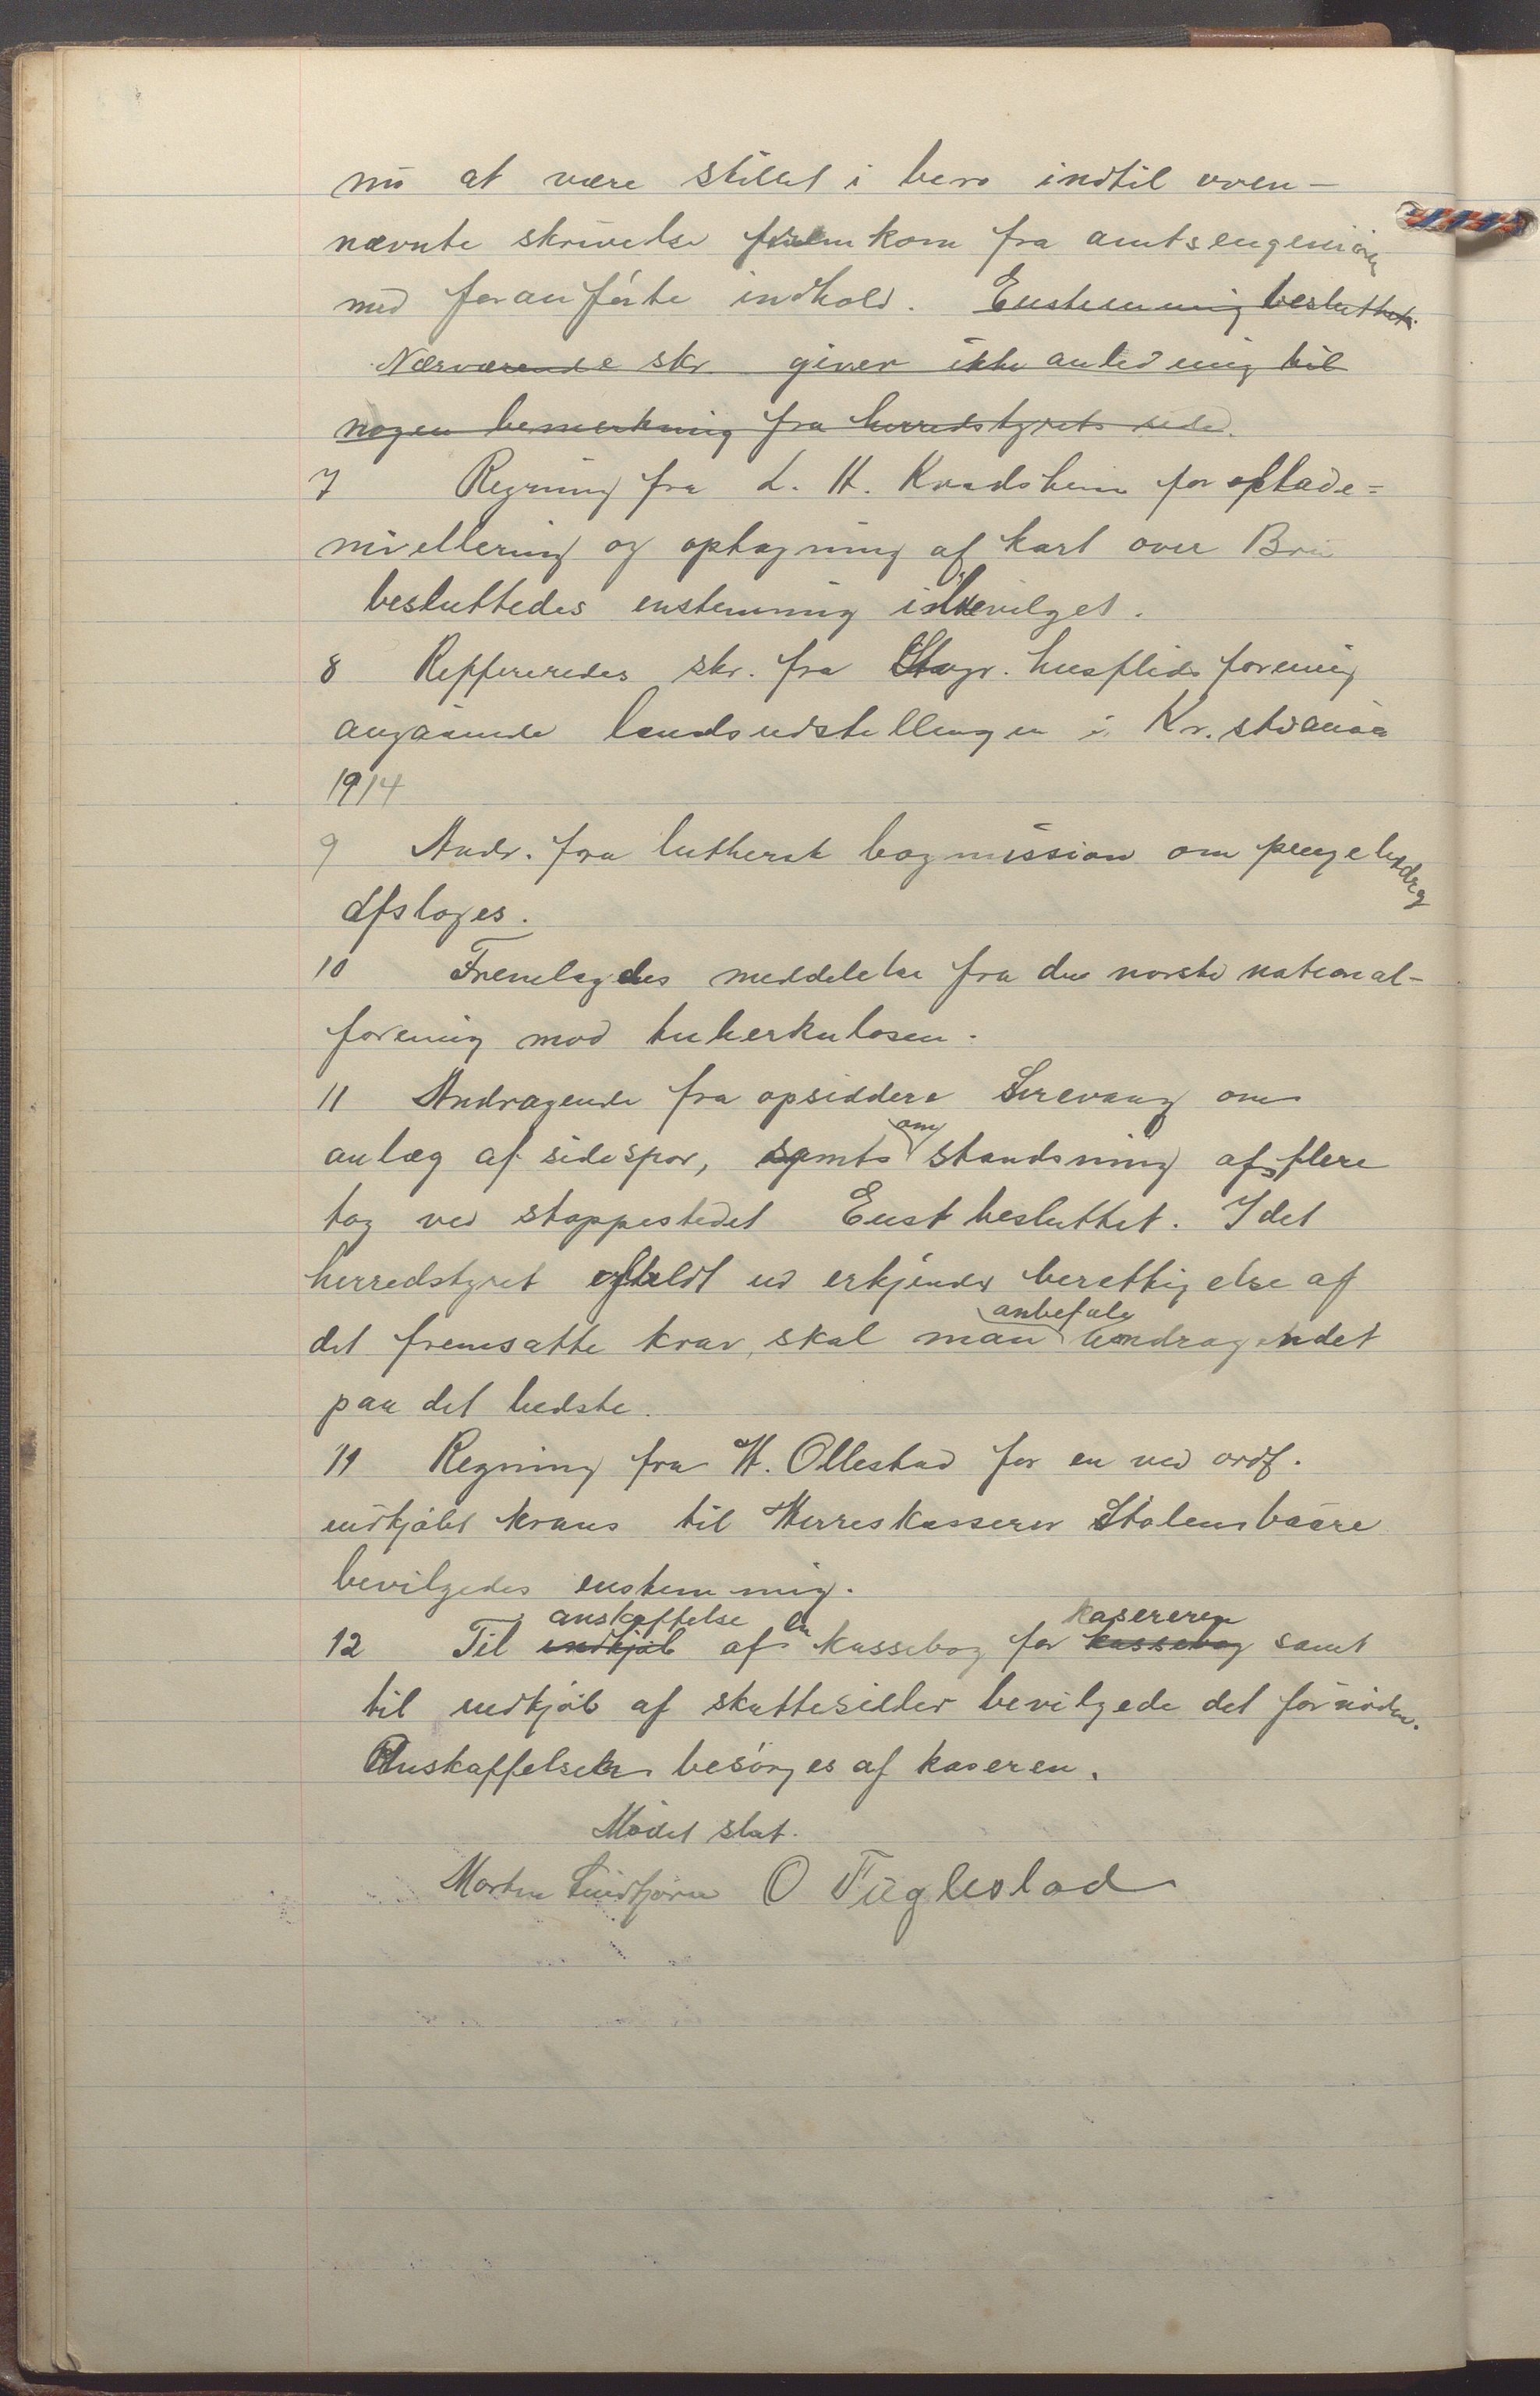 nu at være stillet i bero indtil oven-
nævnte skrivelse fremkom fra amtsengeniøren
med foranførte indhold. Enstemmig besluttet.
Nærværende skr. giver ikke anledning til
nogen bemerkning fra herredstyrets side.
7 Regning fra L. H. Kvadsheim for flade=
nivellering og optagning af kart over Bru
besluttedes enstemmig bevilget.
8 Reffereredes skr. fra Stavgr. husflidsforening
angaaende landsudstillingen i Kr.stiania
1914
9 Andr. fra luthersk bogmission om pengebidrag
Afsloges.
10 Fremlagdes meddelelse fra den norske national-
forening mod tuberkulosen.
11 Andragende fra opsiddere Sirevaag om
anlæg af sidespor, samt om standsning af flere
tog ved stoppestedet Enst besluttet. Idet
herredstyret fuldt ud erkjender berettigelse af
det fremsatte krav, skal man anbefale andragendet
paa det bedste.
11 Regning fra H. Ollestad for en ved ordf.
indkjøbt krans til Herreskasserer Stolens baare
bevilgedes enstemmig.
12 Til indkjøb anskaffelse af en kassebog for kassebog kasereren samt
til indkjøb af skattesedler bevilgede det fornødne.
Anskaffelsen besørges af kaseren.
Mødet slut.
Morten Lindtjørn O Fuglestad